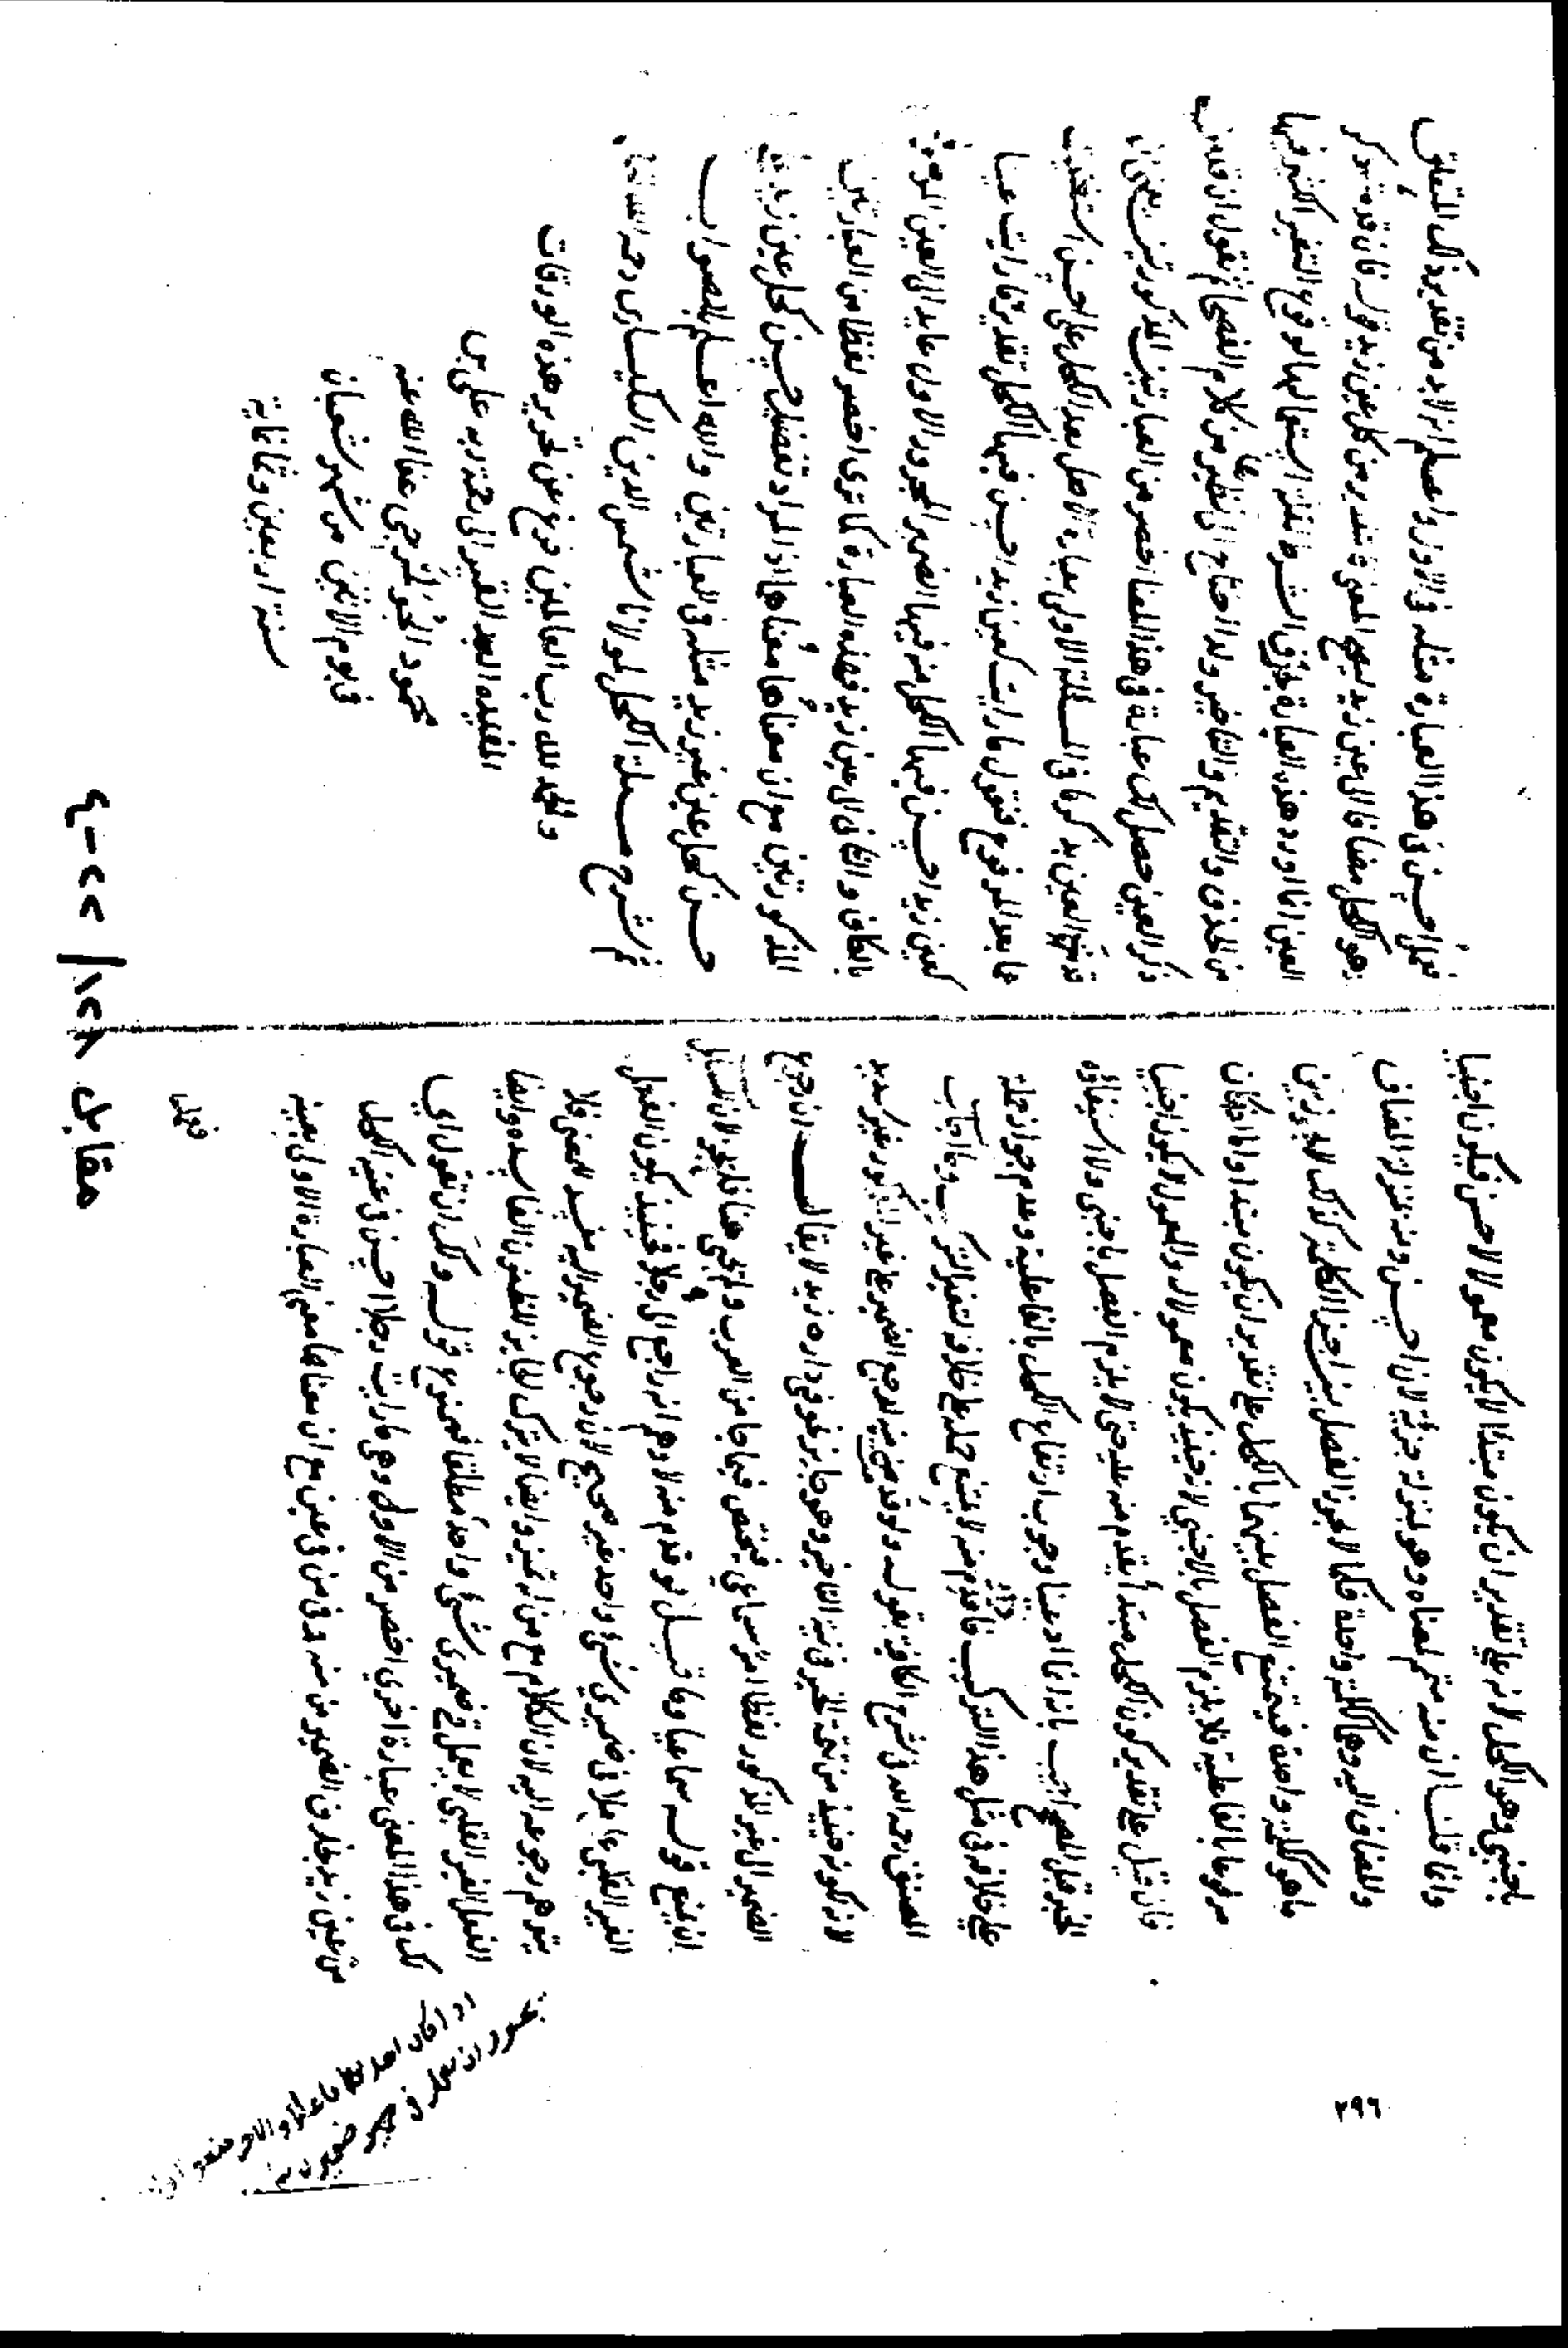 باجنبي وهو الكحل لانه على تقدير ان يكون مبتدأ لا يكون معمولا لاحسن فيكون اجنبيا
وانما قلنا ان منه متمم لمعناه وهو بمنزلة جزئه لان احسن ومنه بمنزلة المضاف
والمضاف اليه وهما ككلمة واحدة فكما لا يجوز الفصل بين اجزاء الكلمة كذلك لا يجوز بين
ما هو ككلمة واحدة فيمتنع الفصل بينهما بالكحل على تقدير ان يكون مبتدأ واما اذا كان
مرفوعا بالفاعلية فلا يلزم الفصل بالاجنبي لانه حينئذ يكون معمولا له والمعمول لا يكون اجنبيا
فان قيل على تقدير كون الكحل مبتدأ يقدم منه عليه حتى لا يلزم الفصل باجنبي ولا استيفاؤه
الخبر قبل المصحح اجيب بانه انما ادعينا وجوب ارتفاع الكحل بالفاعلية وعدم جواز حمله
على خلافه في مثل هذا التركيب فاذا قدم منه لا يمتنع حمله على خلافه لتغير التركيب واجاب
المصنف رحمه الله في شرح الكافية بقوله ولو قدم منه لرجع الضمير على غير المذكور غير سديد
لانه يكون حينئذ من تتمة الخبر في نية التأخير وهو جائز نحو في داره زيد لا يقال ان رجوع
الضمير الى غير المذكور لفظا امر سماعي فيختص فيما جاء من العرب ولم يجئ هنا فلم يجز لان
ان يمنع قوله سماعيا وما قيل لو قدم منه لاوهم انه راجع الى رجلا فحينئذ يكون الفعل
الغير القلبي عاملا في ضميري شيء واحد غير صحيح لان رجوع الضمير اليه مفسد للمعنى فلا
يتوهم رجوعه اليه لان الكلام مع من له تمييز وايضا لا يترك الجايز للظنون الفاسدة وايضا
الفعل الغير القلبي لا يعمل في ضميري شيء واحد مطلقا فممنوع قوله ولك ان تقول اي
لك في هذا المعنى عبارة اخرى اخصر من الاولى وهي ما رايت رجلا احسن في عينه الكحل
من عين زيد بحذف الضمير من منه وفي من في عين مع ان معناها معنى العبارة الاولى بعينه
فعلى
٢٩٦
فعلى احسن في هذا العبارة مثله في الاولى واعلم انه لا بد من تقدير ذلك المتعلق
وهو الكحل مضافا الى عين زيد ليصح المعنى فالتقدير من كحل عين زيد قوله فان قدمت ذكر
العين انما اورد هذه العبارة بحرف الشرط لقلة استعمالها لوقوع التغير الكثير فيها
من الحذف والتقديم والتأخير ولذا احتاج الى نظير من كلام الفصحاء ثم نقول ان قدمت
ذكر العين حصل لك عبارة في هذا المعنى اخصر من العبارتين المذكورتين يعني اذا
قدمت العين بذكرها في المسئلة الاولى بعبارة الاصل بعد الكحل على احسن استغنيت
عما بعد المرفوع فتقول ما رايت كعين زيد احسن فيها الكحل تقديره ما رايت عينا
كعين زيد احسن فيها الكحل منه فيها الضمير المجرور الاول عايد الى العين الموصوفة
بالكاف والثاني الى عين زيد فهذه العبارة كما ترى اخصر لفظا من العبارتين
المذكورتين مع ان معناها معناهما اذ المراد تفضيل حسن كحل عين زيد على
حسن كحل عين غير زيد مثله في العبارتين والله اعلم بالصواب
تم شرح مسئلة الكحل لمولانا شمس الدين رحمه الله
والحمد لله رب العالمين فرغ عن تحرير هذه الورقات
المفيده العبد الفقير الى رحمة ربه علي بن
محمود عفا الله عنه
في يوم الاثنين من شهر شعبان
سنة اربعين وثمانمائة
مقابل